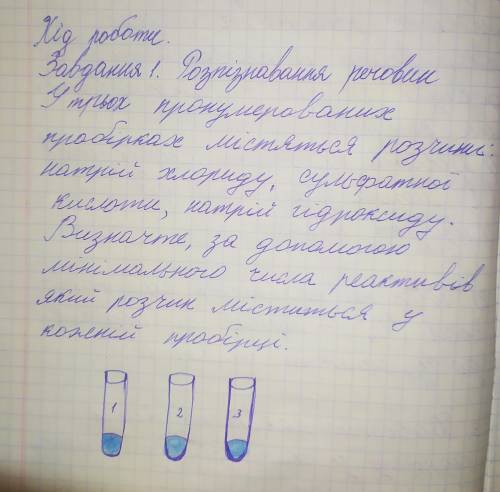 Хід роботи.
Завдання 1. Розпізнавання речовин
У трьох пронумерованих
пробірках містяться розчини:
натрій хлориду, сульфатної
кислоти, натрій гідроксиду.
Визначте, за допомогою
мінімального числа реактивів
який розчин міститься у
кожній пробірці.
1 2 3